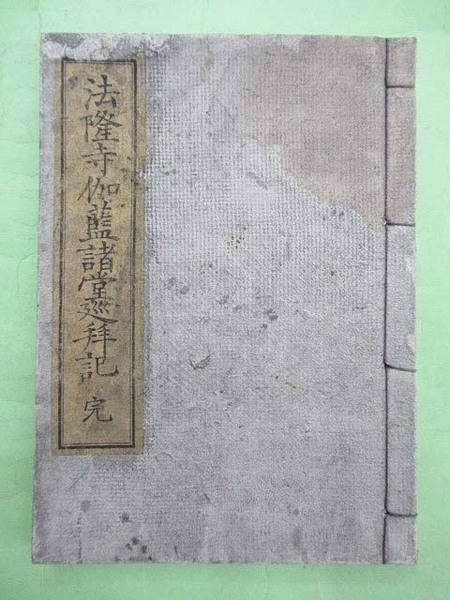 法隆寺伽藍諸堂巡拜記 完